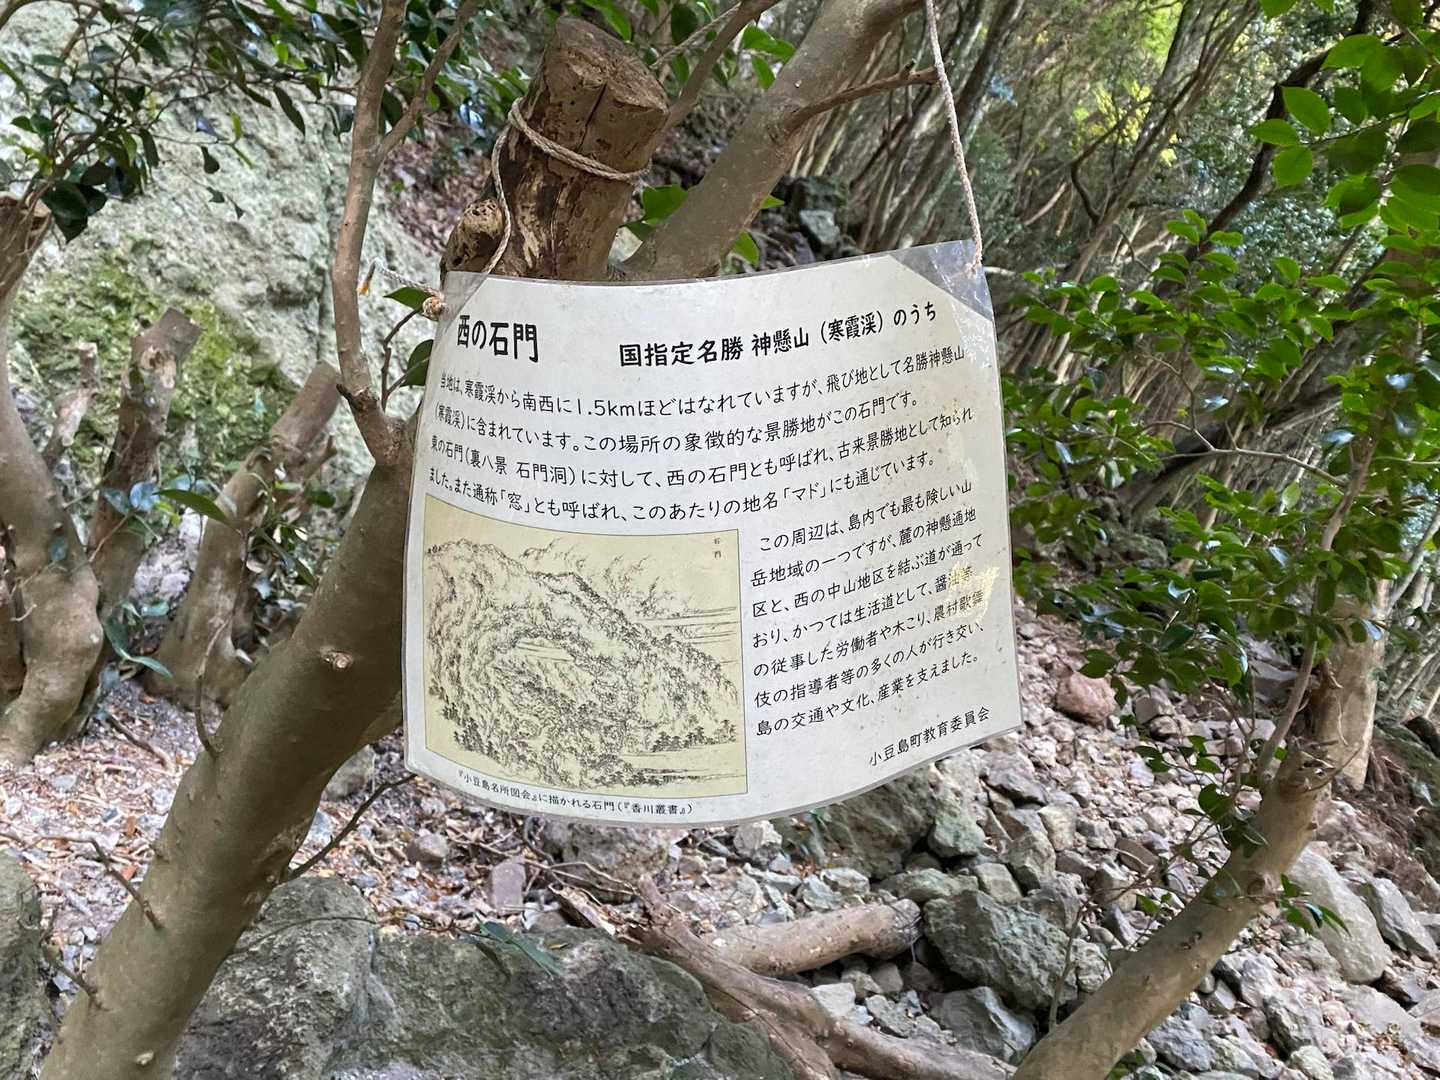 西の石門
国指定名勝 神懸山（寒霞渓）のうち
当地は、寒霞渓から南西に1.5kmほどはなれていますが、飛び地として名勝神懸山
（寒霞渓）に含まれています。この場所の象徴的な景勝地がこの石門です。
東の石門（裏八景 石門洞）に対して、西の石門とも呼ばれ、古来景勝地として知られ
ました。また通称「窓」とも呼ばれ、このあたりの地名「マド」にも通じています。
この周辺は、島内でも最も険しい山
岳地域の一つですが、麓の神懸通地
区と、西の中山地区を結ぶ道が通って
おり、かつては生活道として、醤油等
の従事した労働者や木こり、農村歌舞
伎の指導者等の多くの人が行き交い、
島の交通や文化、産業を支えました。
小豆島町教育委員会
石門
『小豆島名所図会』に描かれる石門（『香川叢書』）